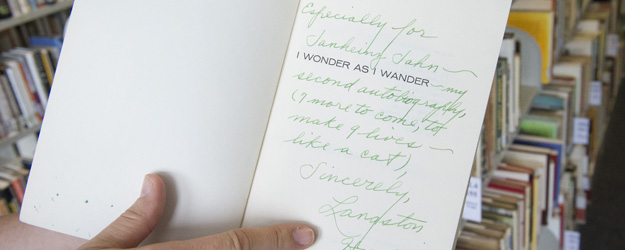 Especially for
Janheinz Jahn —
I WONDER AS I WANDER — my
second autobiography,
(7 more to come, to
make 9 lives —
like a cat),
Sincerely,
Langston